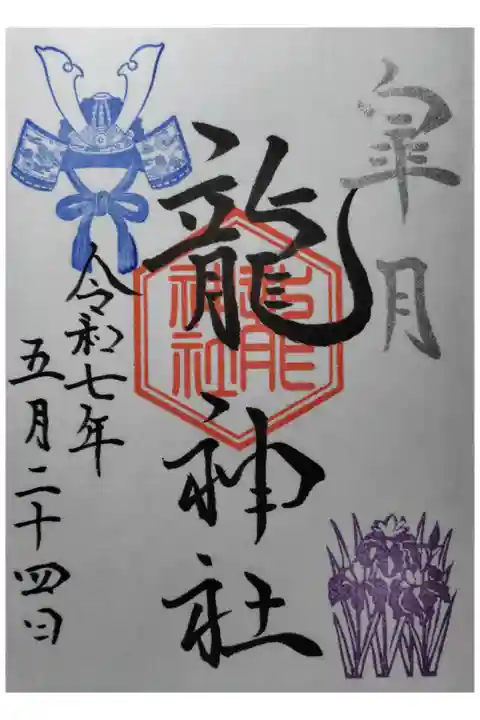 皐月
龍神社
龍神社
令和七年
五月二十四日